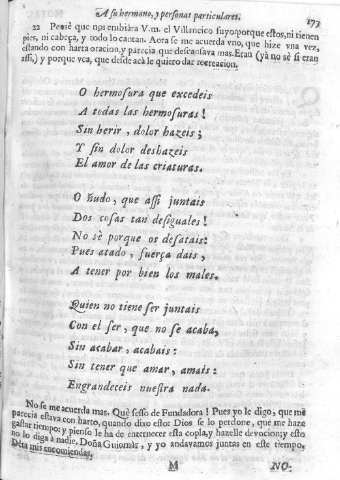 A su hermano, y personas particulares. 173
22 Pensè que nos embiàra V.m. el Villancico suyo: porque estos, ni tienen
pies, ni cabeça, y todo lo cantan. Aora se me acuerda vno, que hize vna vez,
estando con harta oracion, y parecia que descansava mas. Eran (yà no sè si eran
assi,) y porque vea, que desde acà le quiero dar recreacion.
O hermosura que excedeis
A todas las hermosuras!
Sin herir, dolor hazeis;
Y sin dolor deshazeis
El amor de las criaturas.
O ñudo, que assi juntais
Dos cosas tan desiguales!
No sè porque os desatais:
Pues atado, fuerça dais,
A tener por bien los males.
Quien no tiene ser juntais
Con el ser, que no se acaba,
Sin acabar, acabais:
Sin tener que amar, amais:
Engrandeceis nuestra nada.
No se me acuerda mas. Què sesso de Fundadora! Pues yo le digo, que me
parecia estava con harto, quando dixo esto: Dios se lo perdone, que me haze
gastar tiempo: y pienso le ha de enternecer esta copla, y hazelle devocion; y esto
no lo diga à nadie. Doña Guiomàr, y yo andavamos juntas en este tiempo.
Dèla mis encomiendas.
M NO-